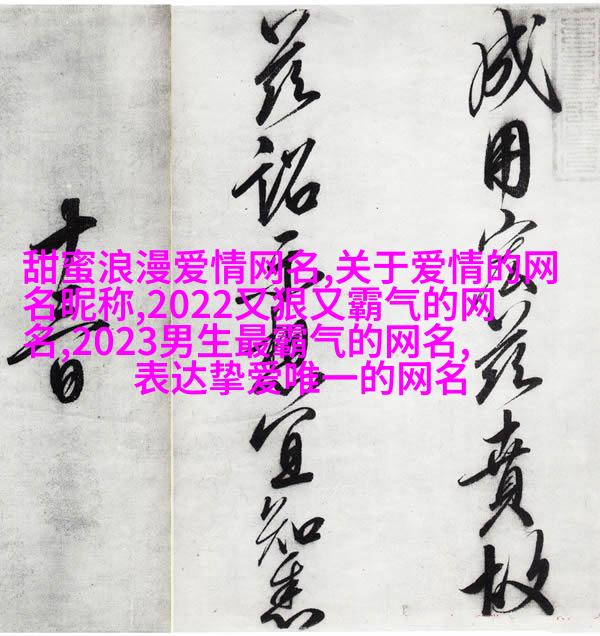 甜蜜浪漫爱情网名,关于爱情的网
名昵称,2022又狠又霸气的网
名,2023男生最霸气的网名,
表达挚爱唯一的网名
成用宏茲賁故
茲詔示想宜知悉
十日